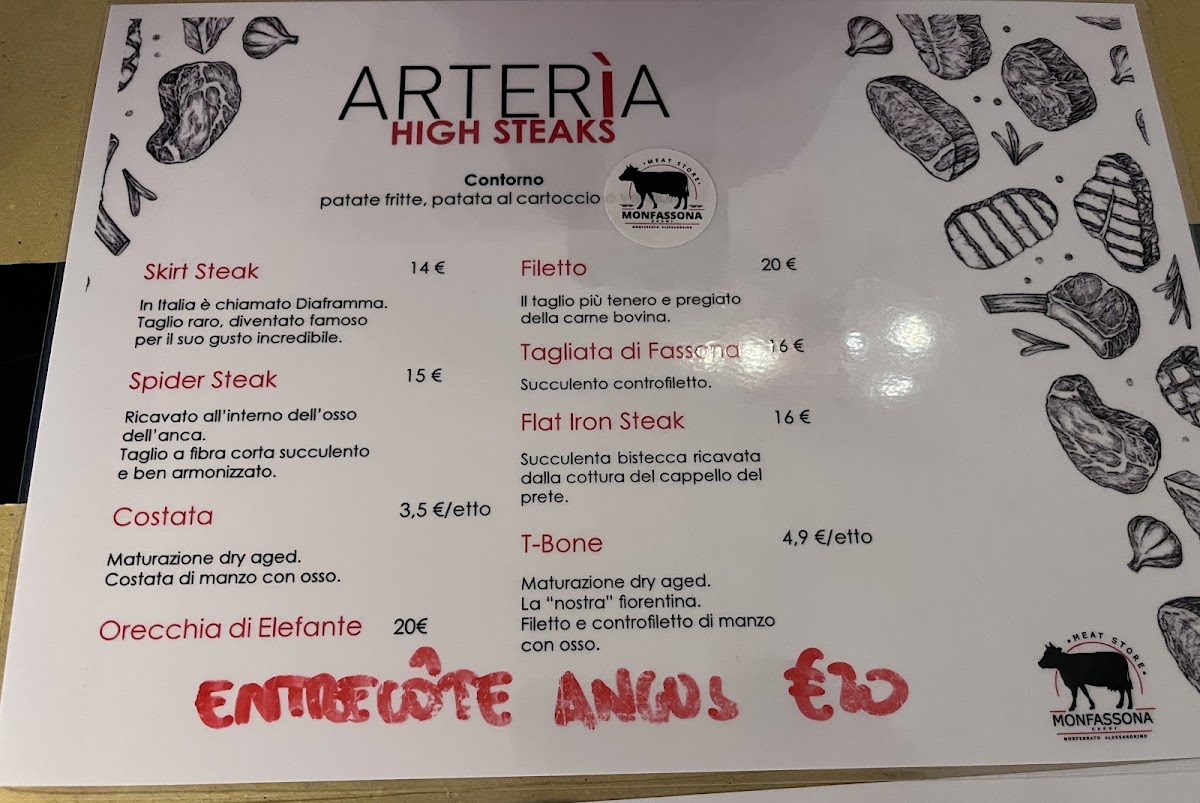 ARTERÌA
HIGH STEAKS
Contorno
patate fritte, patata al cartoccio
MEAT STORE
MONFASSONA
CARNI
MONFERRATO ALESSANDRINO
Skirt Steak 14 €
In Italia è chiamato Diaframma.
Taglio raro, diventato famoso
per il suo gusto incredibile.
Spider Steak 15 €
Ricavato all'interno dell'osso
dell'anca.
Taglio a fibra corta succulento
e ben armonizzato.
Costata 3,5 €/etto
Maturazione dry aged.
Costata di manzo con osso.
Orecchia di Elefante 20€
Filetto 20 €
Il taglio più tenero e pregiato
della carne bovina.
Tagliata di Fassona 16 €
Succulento controfiletto.
Flat Iron Steak 16 €
Succulenta bistecca ricavata
dalla cottura del cappello del
prete.
T-Bone 4,9 €/etto
Maturazione dry aged.
La "nostra" fiorentina.
Filetto e controfiletto di manzo
con osso.
ENTRECÔTE ANGUS €20
MEAT STORE
MONFASSONA
CARNI
MONFERRATO ALESSANDRINO